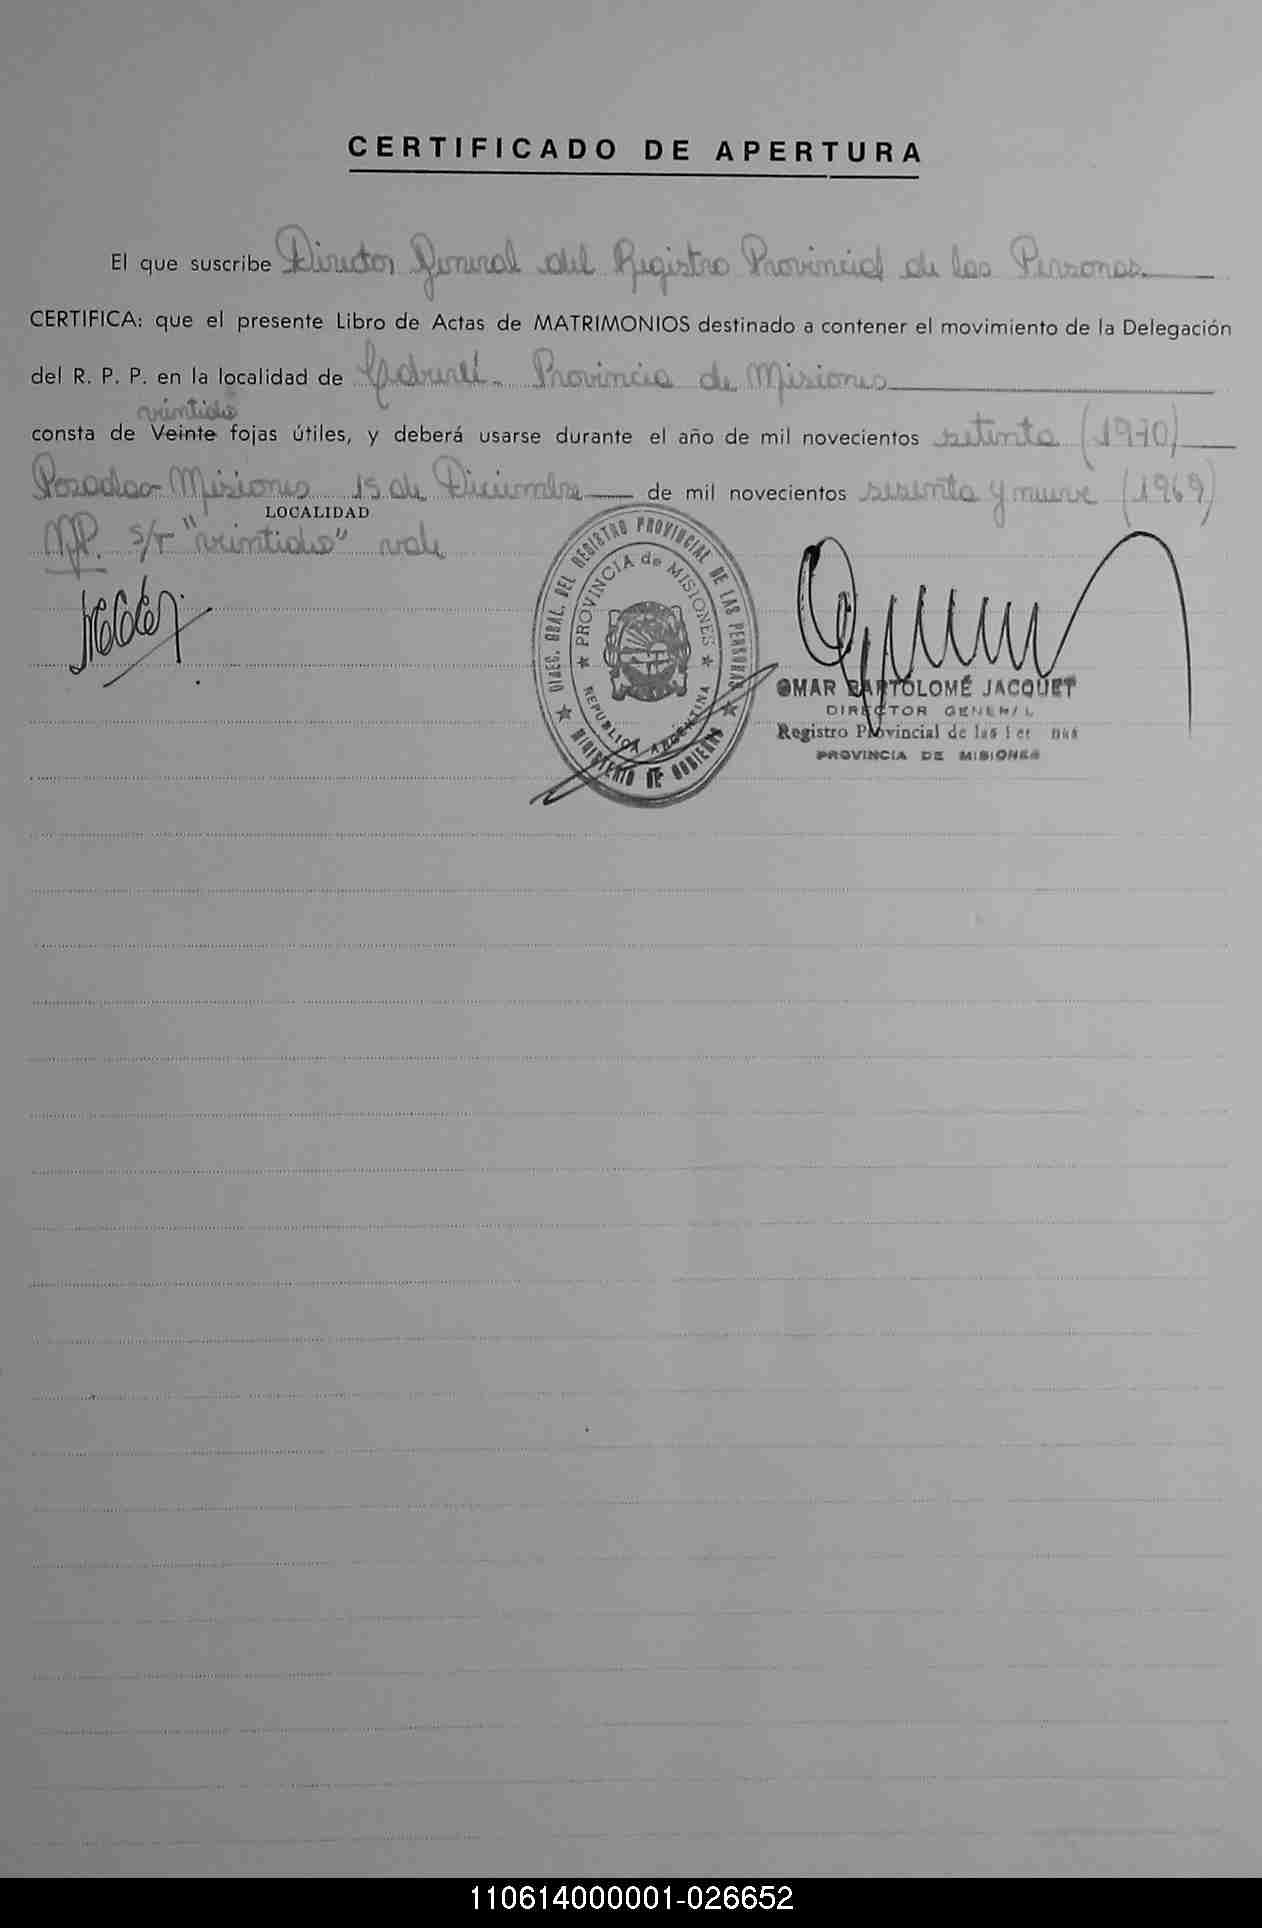 CERTIFICADO DE APERTURA
El que suscribe Director General del Registro Provincial de las Personas
CERTIFICA: que el presente Libro de Actas de MATRIMONIOS destinado a contener el movimiento de la Delegación
del R. P. P. en la localidad de Caburei - Provincia de Misiones
veintidos
consta de Veinte fojas útiles, y deberá usarse durante el año de mil novecientos setenta (1970)
Posadas - Misiones 15 de Diciembre de mil novecientos sesenta y nueve (1969)
LOCALIDAD
s/r "veintidos" vale
DIREC. GRAL. DEL REGISTRO PROVINCIAL DE LAS PERSONAS
PROVINCIA de MISIONES
REPUBLICA ARGENTINA
MINISTERIO DE GOBIERNO
OMAR BARTOLOMÉ JACQUET
DIRECTOR GENERAL
Registro Provincial de las Personas
PROVINCIA DE MISIONES
110614000001-026652